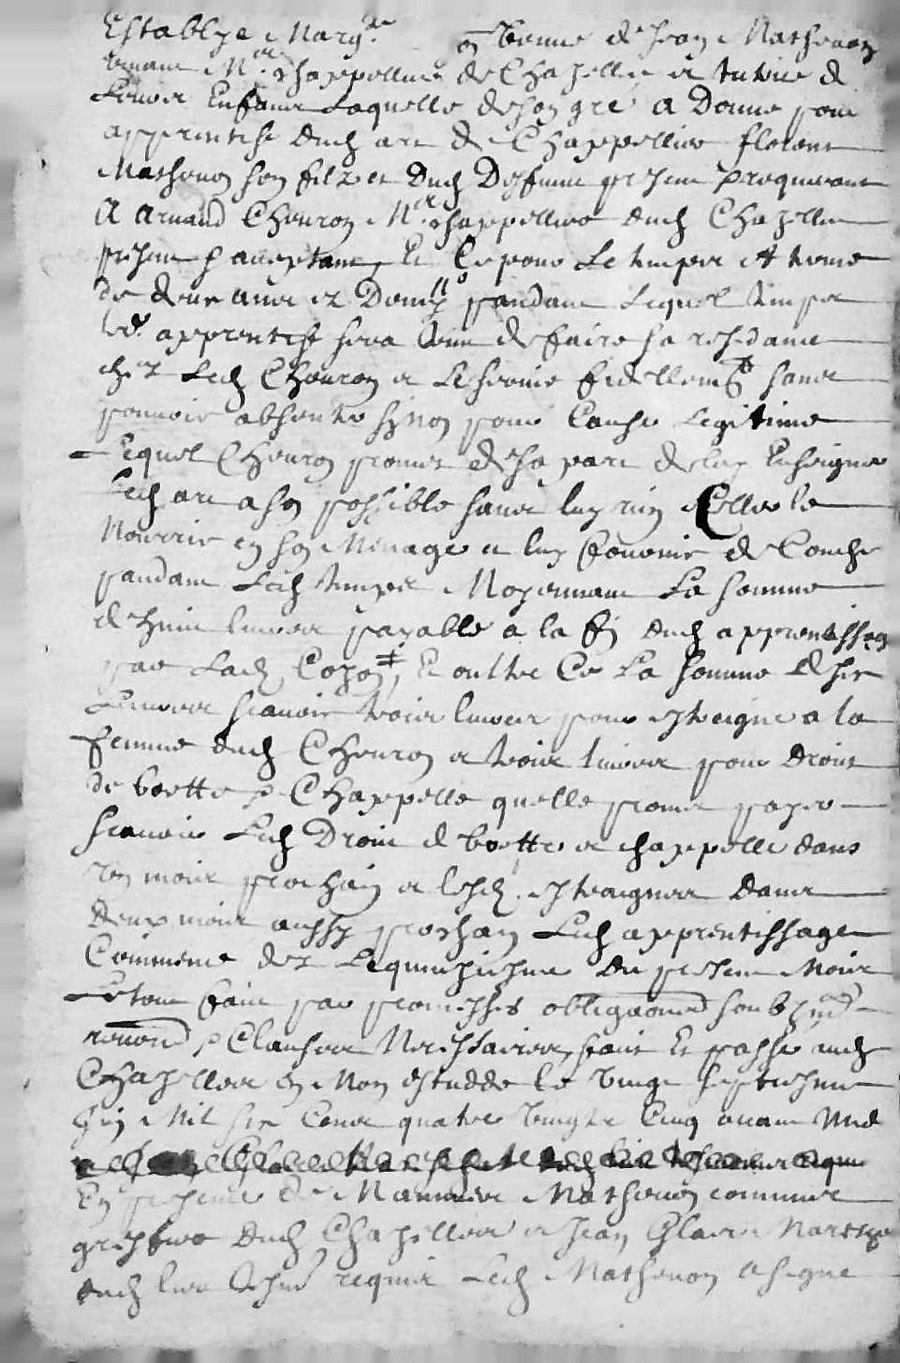 Establye Margte vefve de Jean Mathevon
vivant Me chappellier de Chazelles et tutrice de
Leurs Enfans Laquelle de son gré a Donné pour
apprentif dud art de Chappellier florent
Mathevon son filz et dud Deffunt présent requerant
A Arnaud Chevron Me chappellier dud Chazelles
présent & acceptant, Et Ce pour Le temps et terme
de deux ans et Demy pandant Lequel temps
led apprentif sera tenu de faire sa residance
chez Led Chevron et Le servir fidellemt sans
pouvoir absenter sinon pour Cause Legitime
Lequel Chevron promet de sa part de luy Enseigner
Led art a son possible sans luy rien Celler le
Nourrir en son Menage et luy fournir de Couche
pandant Led temps Moyennant La somme
de huit livres payable a la fin dud apprentissage
par Lad, Et oultre Ce La somme de six
Livres scavoir trois livres pour estreigne a la
femme dud Chevron et trois livres pour Droit
de boette & Chappelle quelle promet payer
scavoir Led Droit de boette et chappelle dans
un mois prochain et lesd estraignes Dans
deux mois aussy prochain Led apprentissage
Commence dez Le quinziesme du présent Mois
Le tout fait par promesses obligaons soubzmis
renond & Clauses Necessaires, fait Et passé aud
Chazelles En Mon estudde le vingt septiesme
Juin Mil six Cens quatre vingtz Cinq avant Midi
En presence de Mathevon commis
greffier dud Chazelles et Jean
dud lieu tesms requis Led Mathevon a signé